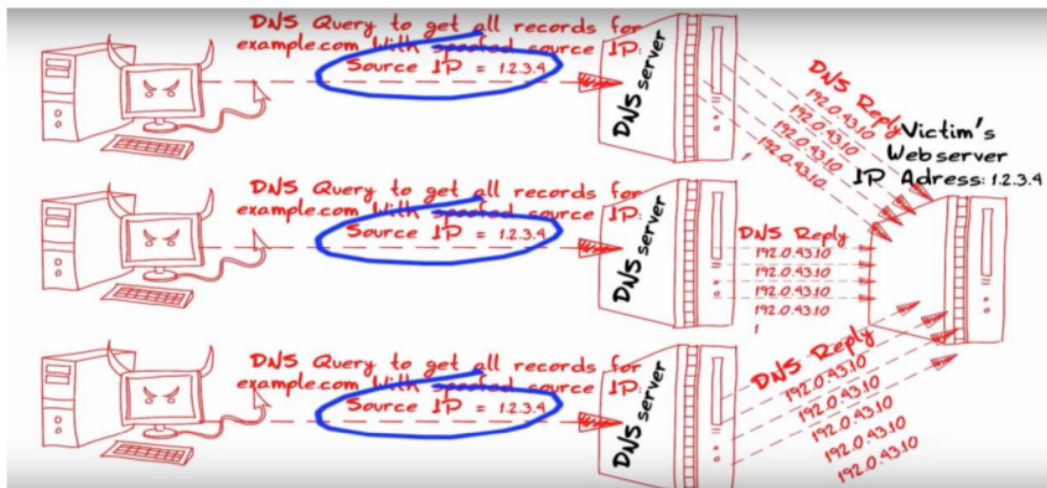 DNS Query to get all records for
example.com With spoofed source IP:
Source IP = 1.2.3.4
DNS server
DNS Reply
192.0.43.10
192.0.43.10
192.0.43.10
192.0.43.10
Victim's
Webserver
IP Adress: 1.2.3.4
DNS Query to get all records for
example.com With spoofed source IP:
Source IP = 1.2.3.4
DNS server
DNS Reply
192.0.43.10
192.0.43.10
192.0.43.10
192.0.43.10
DNS Query to get all records for
example.com With spoofed source IP:
Source IP = 1.2.3.4
DNS server
DNS Reply
192.0.43.10
192.0.43.10
192.0.43.10
192.0.43.10
192.0.43.10